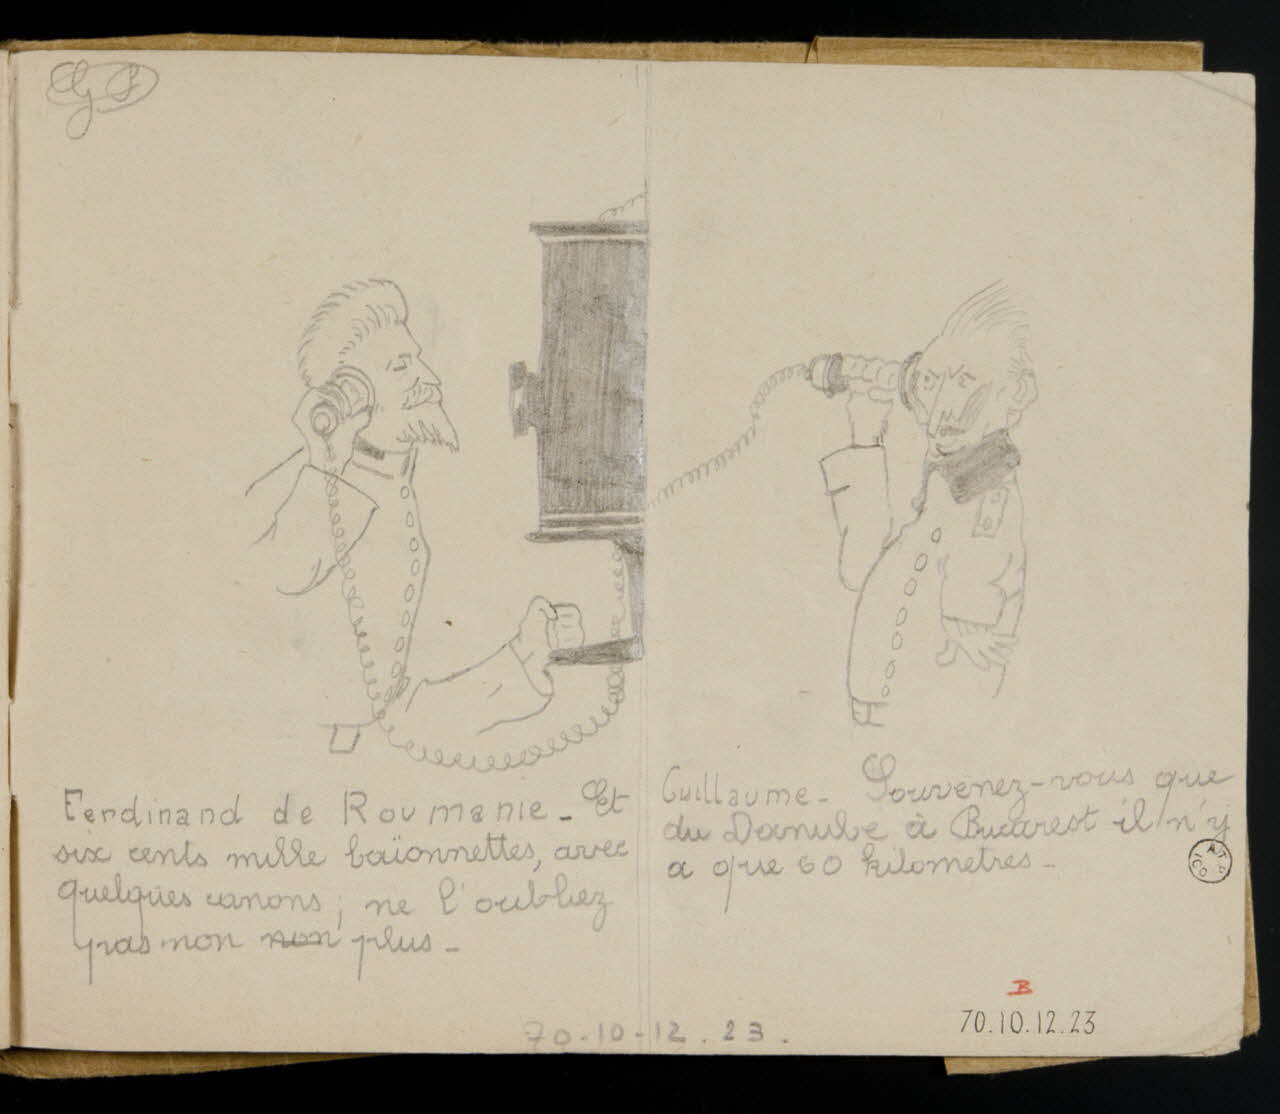 Ferdinand de Roumanie - Et
six cents mille baïonnettes, avec
quelques canons; ne l'oubliez
pas non non plus -
Guillaume - Souvenez-vous que
du Danube à Bucarest il n'y
a que 60 kilometres -
70.10-12.23.
B
70.10.12.23